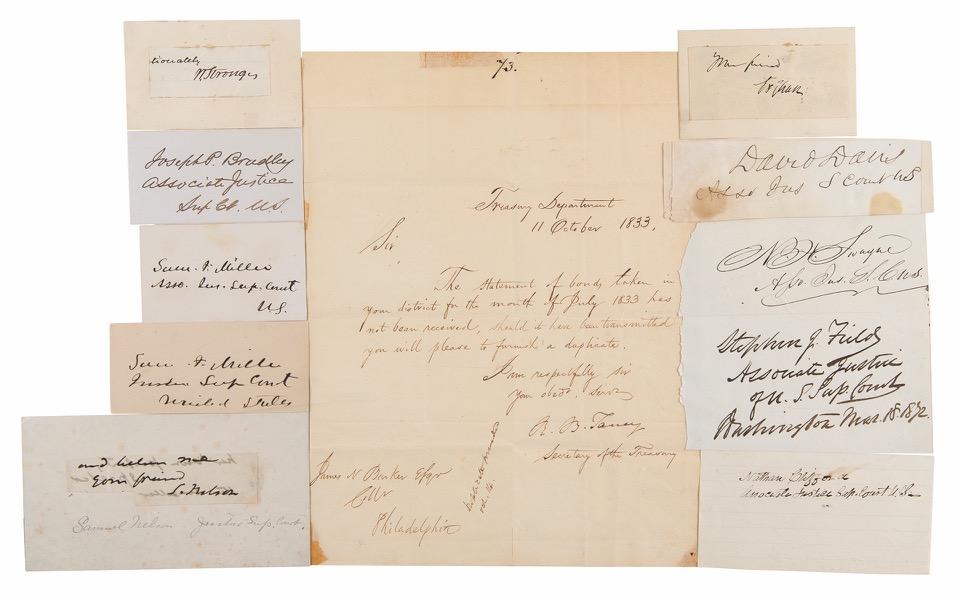 tionately
W. Strong
Joseph P. Bradley
Associate Justice
Sup Ct. U.S.
Sam. F. Miller
Asso. Jus. Sup. Court
U.S.
Sam F. Miller
Justice Sup Court
United States
and believe me
Your friend
S. Nelson
Samuel Nelson Justice Sup. Court.
73.
Treasury Department
11 October 1833.
Sir
The statement of bonds taken in
your district for the month of July 1833 has
not been received, should it have been transmitted
you will please to furnish a duplicate.
I am respectfully sir
your obedt. servt
R. B. Taney
Secretary of the Treasury
James N. Barker Esqr
Collr
Philadelphia
Duplicate forwarded
Your friend
David Davis
Asso Jus S Court US
N. H. Swayne
Asso. Jus. S. C. U.S.
Stephen J. Field
Associate Justice
of U. S. Sup. Court
Washington Mar. 18. 1872.
Nathan Clifford
Associate Justice Sup. Court U.S.